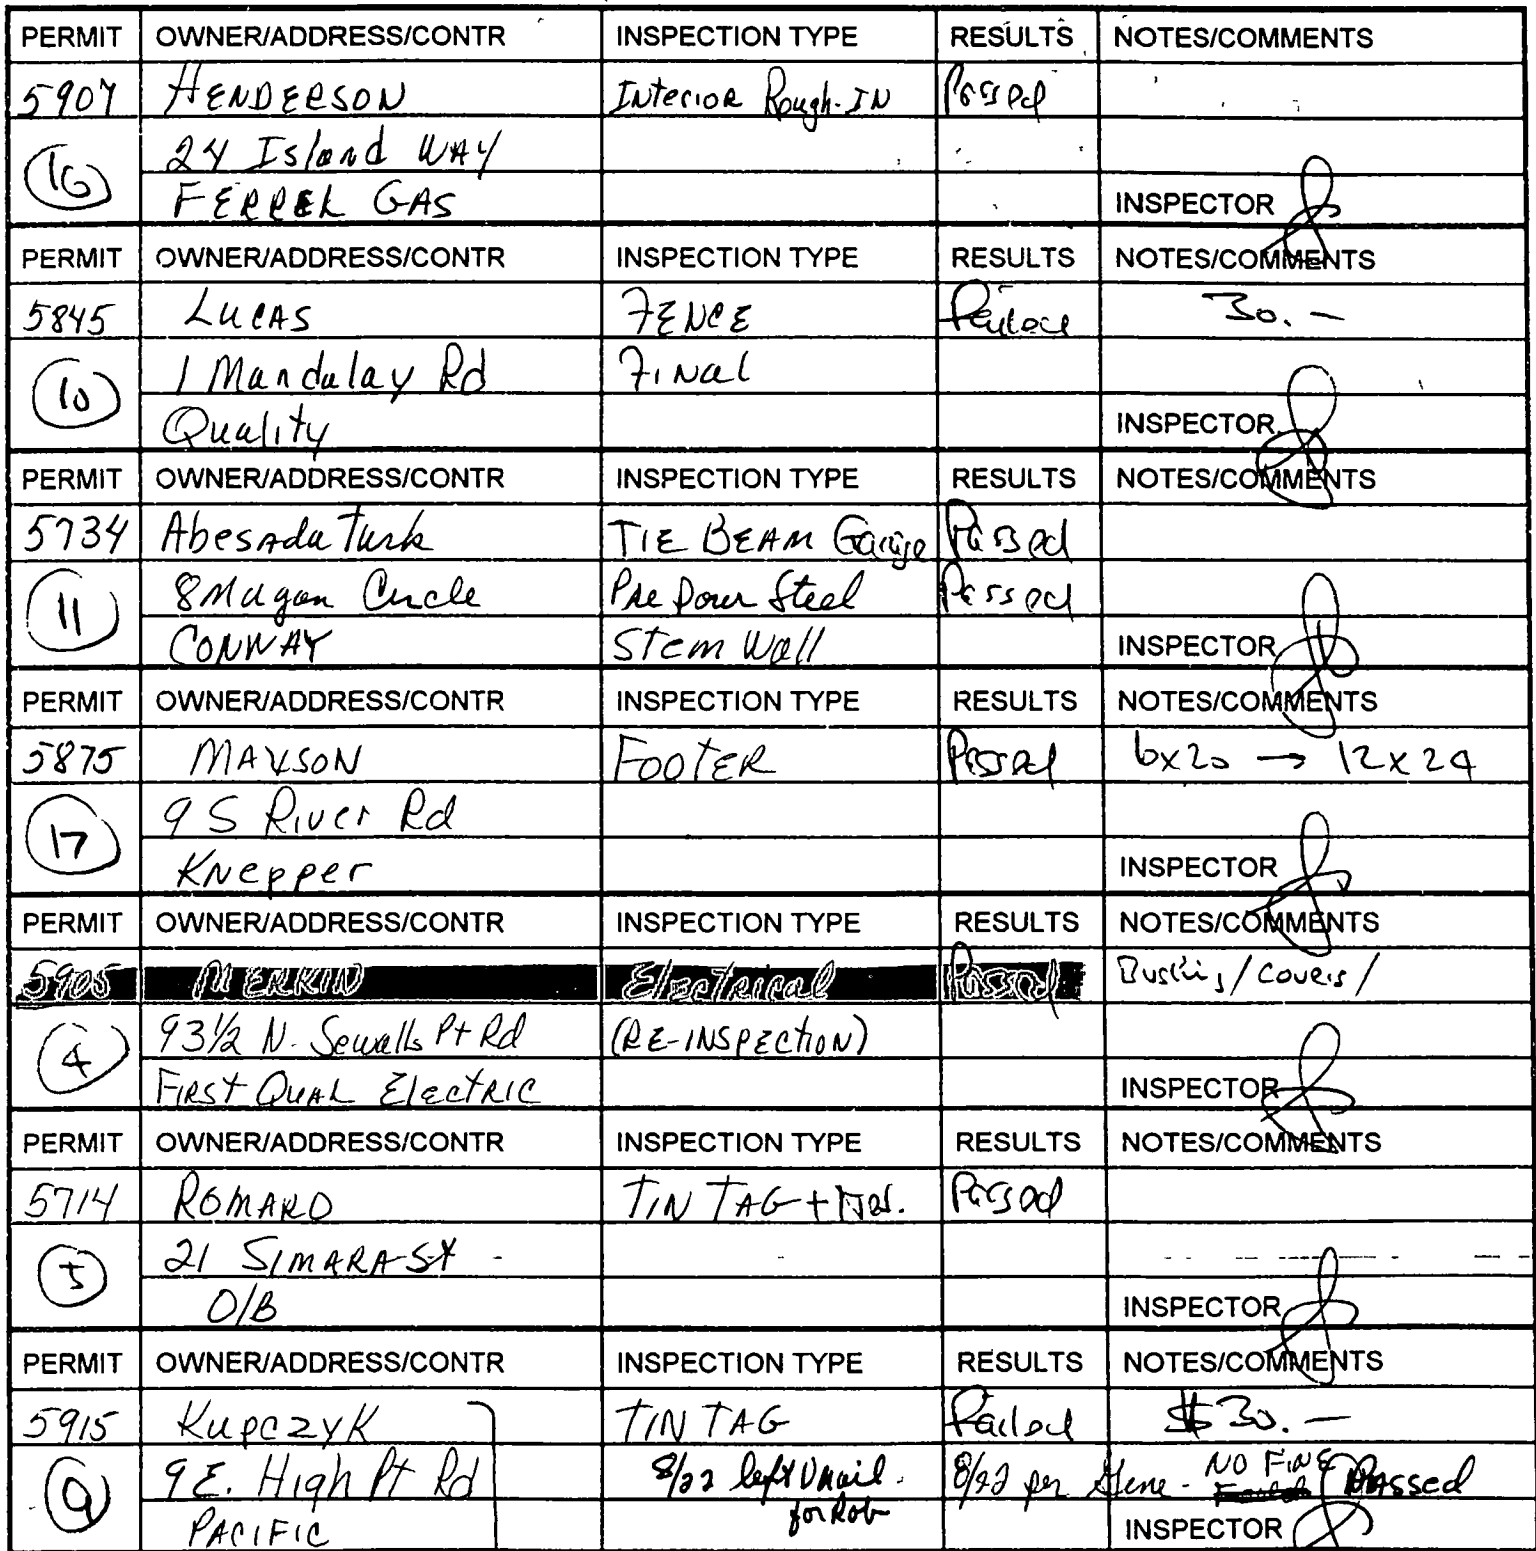 PERMIT OWNER/ADDRESS/CONTR INSPECTION TYPE RESULTS NOTES/COMMENTS
5907 HENDERSON INterioR Rough-IN Passed
16 24 Island WAY
FERREL GAS INSPECTOR
PERMIT OWNER/ADDRESS/CONTR INSPECTION TYPE RESULTS NOTES/COMMENTS
5845 LucAS FENCE Failed 30.—
10 1 Mandalay Rd FiNal
Quality INSPECTOR
PERMIT OWNER/ADDRESS/CONTR INSPECTION TYPE RESULTS NOTES/COMMENTS
5734 Abesada Turk TIE BEAM Garage Passed
11 8 Circle Pre Pour Steel Passed
CONWAY Stem Wall INSPECTOR
PERMIT OWNER/ADDRESS/CONTR INSPECTION TYPE RESULTS NOTES/COMMENTS
5875 FOOTER Passed 6x20 → 12x24
17 9 S River Rd
KNepper INSPECTOR
PERMIT OWNER/ADDRESS/CONTR INSPECTION TYPE RESULTS NOTES/COMMENTS
5905 MERKIN ElectRical Passed / Covers /
4 93½ N. Sewalls Pt Rd (RE-INSPECTION)
FIRST QUAL ElectRIC INSPECTOR
PERMIT OWNER/ADDRESS/CONTR INSPECTION TYPE RESULTS NOTES/COMMENTS
5714 TIN TAG + Passed
5 21 SIMARA ST
O/B INSPECTOR
PERMIT OWNER/ADDRESS/CONTR INSPECTION TYPE RESULTS NOTES/COMMENTS
5915 KupczyK TIN TAG Failed $30.—
9 9 E. High Pt Rd 8/22 left Vmail 8/22 per Gene - NO FINE Passed
PACIFIC for Rob INSPECTOR